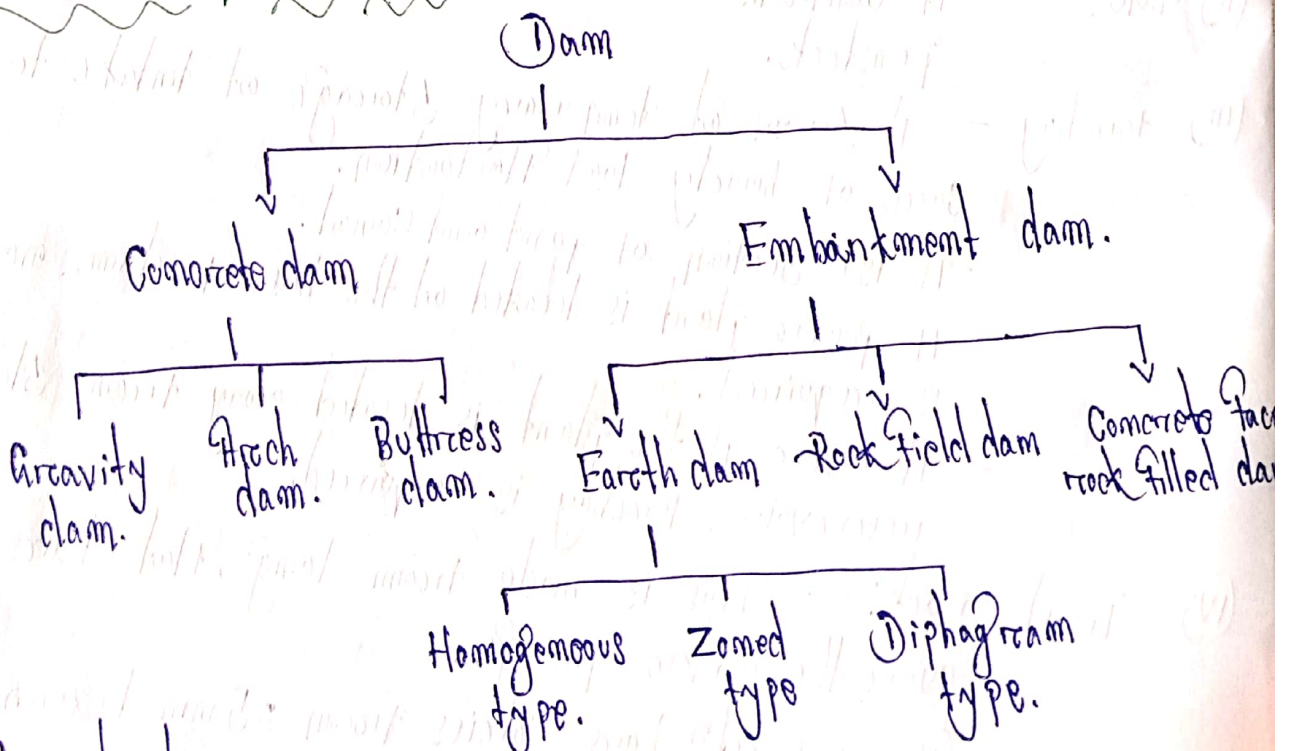 Dam
Concrete dam
Embankment dam.
Gravity
dam.
Arch
dam.
Buttress
dam.
Earth dam
Rock field dam
Concrete
rock filled
Homogeneous
type.
Zoned
type
Diphagram
type.